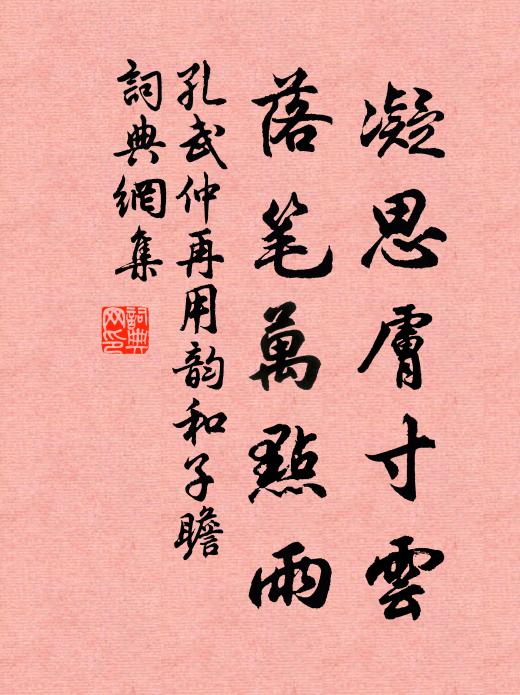 凝思膚寸雲
落笔萬點雨
孔武仲再用韵和子瞻
詞典網集
詞典
网印